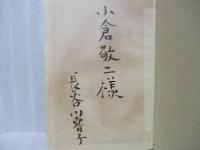 小倉敬二様
長谷川智子